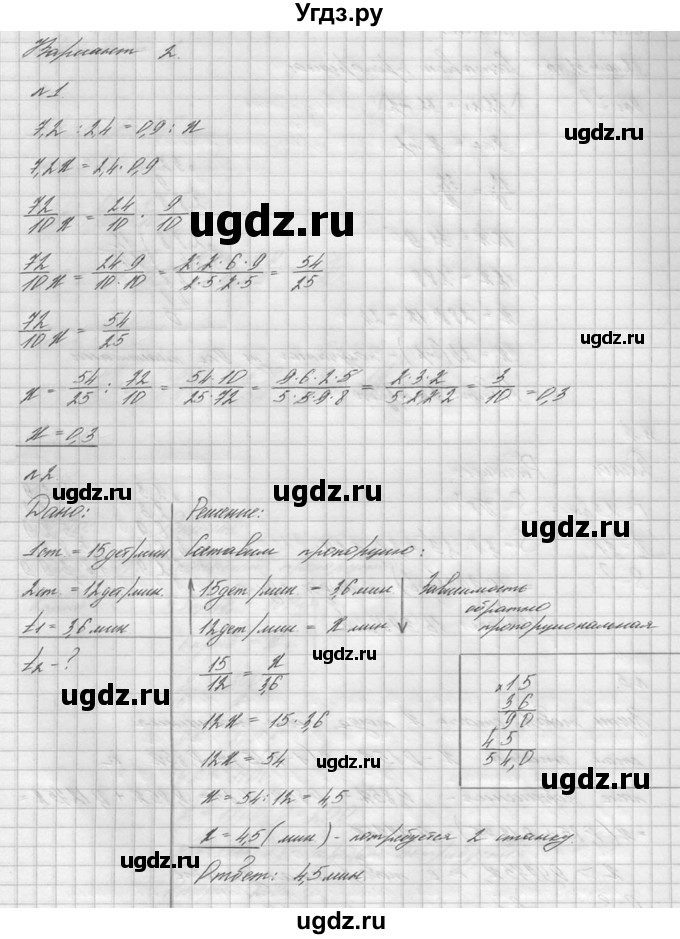 Угдз.ру
Вариант 2.
№1
7,2 : 2,4 = 0,9 : x
7,2x = 2,4 · 0,9
72/10 x = 24/10 · 9/10
ugdz.ru
72/10 x = 24·9/10·10 = 2·2·6·9/2·5·2·5 = 54/25
ugdz.ru
72/10 x = 54/25
ugdz.ru
x = 54/25 : 72/10 = 54·10/25·72 = 9·6·2·5/5·5·9·8 = 2·3·2/5·2·2·2 = 3/10 = 0,3
x = 0,3
№2
ugdz.ru
Дано:
1 ст. = 15 дет/мин
2 ст. = 12 дет/мин.
t1 = 3,6 мин
t2 - ?
ugdz.ru
Решение:
ugdz.ru
Составим пропорцию:
15 дет/мин – 3,6 мин
12 дет/мин = x мин
Зависимость
обратно
пропорциональная
ugdz.ru
15/12 = x/3,6
12x = 15 · 3,6
12x = 54
x = 54 : 12 = 4,5
x = 4,5 (мин) - потребуется 2 станку
Ответ: 4,5 мин
ugdz.ru
x 15
3 6
9 0
4 5
5 4,0
ugdz.ru
ugdz.ru
ugdz.ru
ugdz.ru